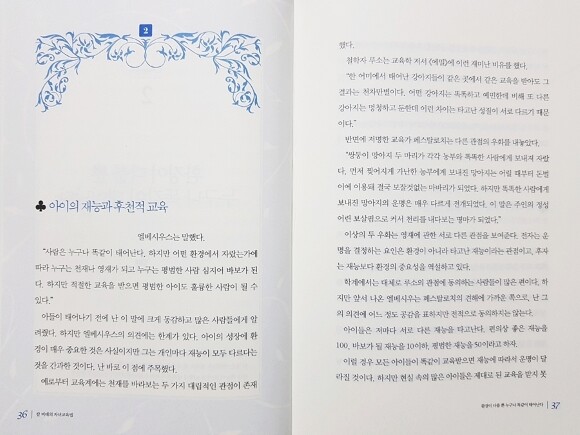 2
♣ 아이의 재능과 후천적 교육
엘베시우스는 말했다.
"사람은 누구나 똑같이 태어난다. 하지만 어떤 환경에서 자랐는가에
따라 누구는 천재나 영재가 되고 누구는 평범한 사람 심지어 바보가 된
다. 하지만 적절한 교육을 받으면 평범한 아이도 훌륭한 사람이 될 수
있다."
아들이 태어나기 전에 난 이 말에 크게 동감하고 많은 사람들에게 알
려줬다. 하지만 엘베시우스의 의견에는 한계가 있다. 아이의 성장에 환
경이 매우 중요한 것은 사실이지만 그는 개인마다 재능이 모두 다르다는
것을 간과한 것이다. 난 바로 이 점에 주목했다.
예로부터 교육계에는 천재를 바라보는 두 가지 대립적인 관점이 존재
36 칼 비테의 자녀교육법
했다.
철학자 루소는 교육학 저서 《에밀》에 이런 재미난 비유를 했다.
"한 어미에서 태어난 강아지들이 같은 곳에서 같은 교육을 받아도 그
결과는 천차만별이다. 어떤 강아지는 똑똑하고 예민한데 비해 또 다른
강아지는 멍청하고 둔한데 이런 차이는 타고난 성질이 서로 다르기 때문
이다."
반면에 저명한 교육가 페스탈로치는 다른 관점의 우화를 내놓았다.
"쌍둥이 망아지 두 마리가 각각 농부와 똑똑한 사람에게 보내져 자랐
다. 먼저 찢어지게 가난한 농부에게 보내진 망아지는 어릴 때부터 돈벌
이에 이용돼 결국 보잘것없는 마바리가 되었다. 하지만 똑똑한 사람에게
보내진 망아지의 운명은 매우 다르게 전개되었다. 이 말은 주인의 정성
어린 보살핌으로 커서 천리를 내다보는 명마가 되었다."
이상의 두 우화는 영재에 관한 서로 다른 관점을 보여준다. 전자는 운
명을 결정하는 요인은 환경이 아니라 타고난 재능이라는 관점이고, 후자
는 재능보다 환경의 중요성을 역설하고 있다.
학계에서는 대체로 루소의 관점에 동의하는 사람들이 많은 편이다. 하
지만 앞서 나온 엘베시우스는 페스탈로치의 견해에 가까운 쪽으로, 난 그
의 의견에 어느 정도 공감을 표하지만 전적으로 동의하지는 않는다.
아이들은 저마다 서로 다른 재능을 타고난다. 편의상 좋은 재능을
100, 바보가 될 재능을 10이하, 평범한 재능을 50이라고 하자.
이럴 경우 모든 아이들이 똑같이 교육받으면 재능에 따라서 운명이 달
라질 것이다. 하지만 현실 속의 많은 아이들은 제대로 된 교육을 받지 못
37